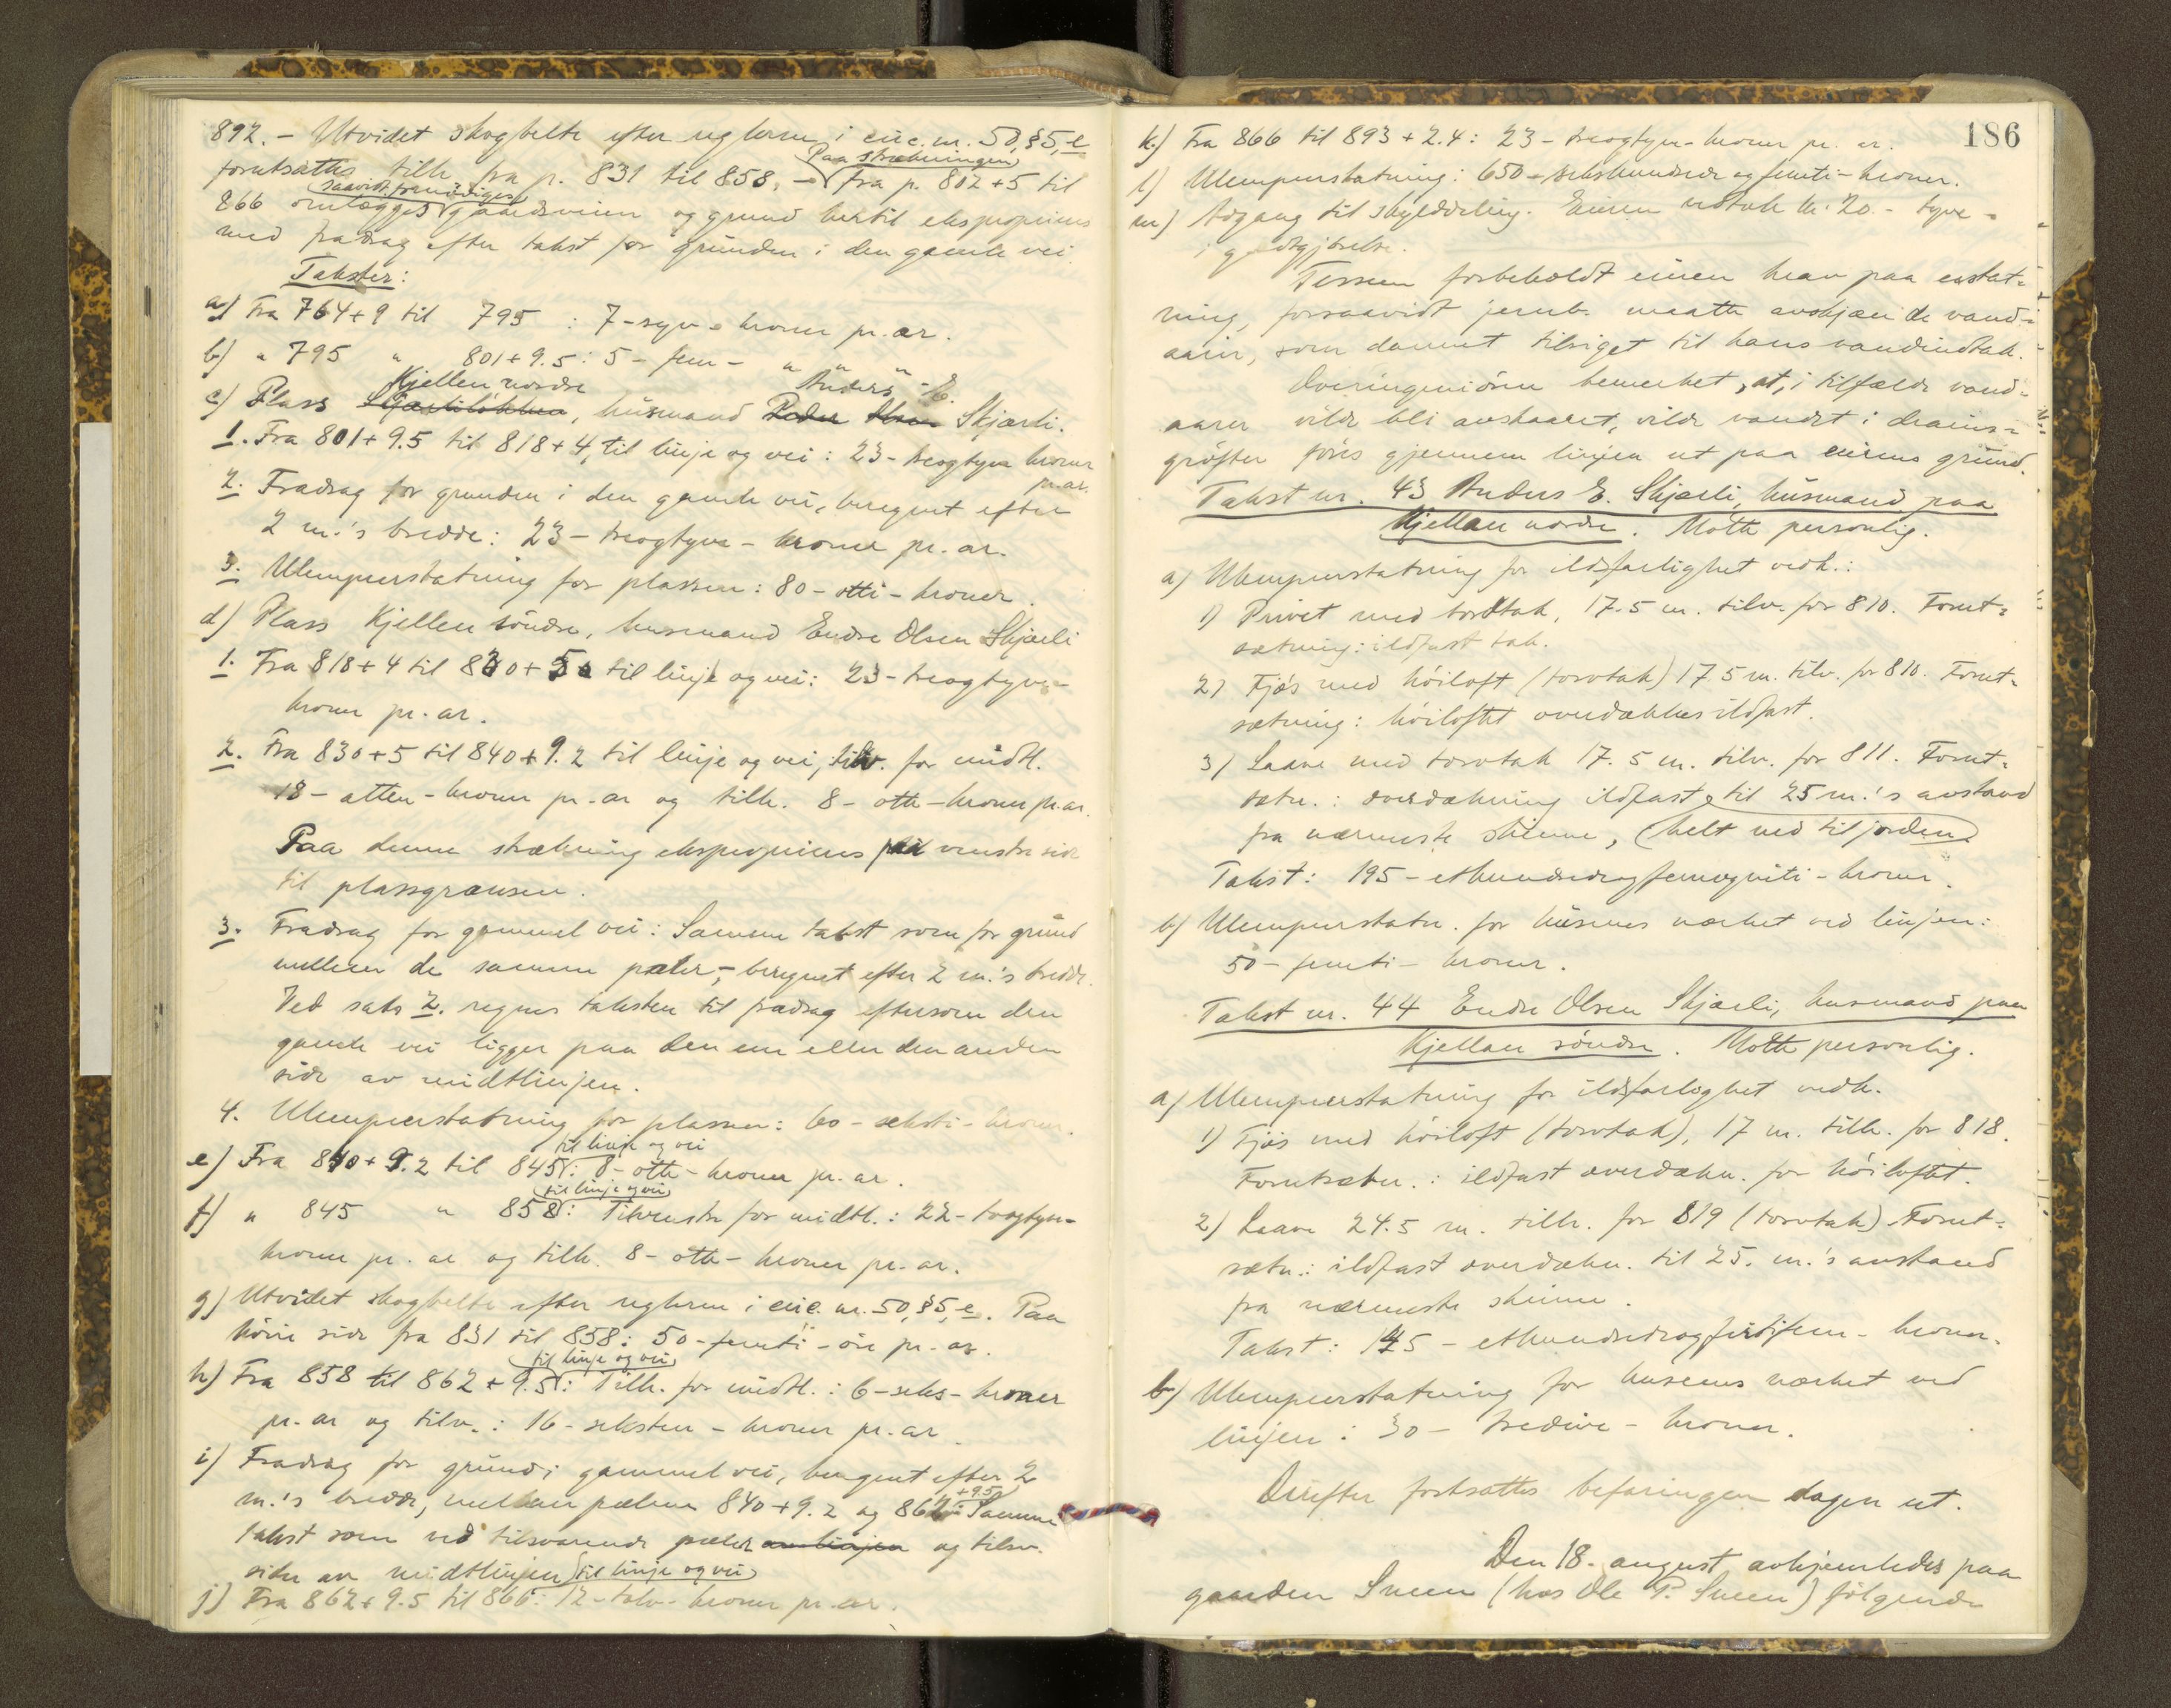 892. - Utvidet skogbelte efter reglerne i circ. nr. 50, §5, e
forutsættes tilh. fra p. 831 til 858. - Paa strækningen fra p. 802+5 til
866 omlægges saavidt fornødiges gaardsveien og grund hertil eksproprieres
med fradrag efter takst for grunden i den gamle vei.
Takster:
a) Fra 764+9 til 795 : 7 - syv - kroner pr. ar.
b) " 795 " 801+9.5 : 5 - fem - " " "
c) Plass Kjellen nordre, husmand Anders E. Skjærli.
1. Fra 801+9.5 til 818+4, til linje og vei : 23 - treogtyve kroner
pr. ar.
2. Fradrag for grunden i den gamle vei, beregnet efter
2 m.'s bredde : 23 - treogtyve - kroner pr. ar.
3. Ulempeerstatning for plassen : 80 - otti - kroner.
d) Plass Kjellen söndre, husmand Endre Olsen Skjærli
1. Fra 818+4 til 830+5 til linje og vei : 23 - treogtyve -
kroner pr. ar.
2. Fra 830+5 til 840+9.2 til linje og vei, tilv. for midtl.
18 - atten - kroner pr. ar og tilh. 8 - otte - kroner pr. ar.
Paa denne strækning eksproprieres paa venstre side
til plassgrænsen.
3. Fradrag for gammel vei : Samme takst som for grund
mellem de samme pæler, - beregnet efter 2 m.'s bredde.
Ved sats 2. regnes taksten til fradrag eftersom den
gamle vei ligger paa den ene eller den anden
side av midtlinjen.
4. Ulempeerstatning for plassen : 60 - seksti - kroner.
e) Fra 840+9.2 til 845 til linje og vei : 8 - otte - kroner pr. ar.
f) " 845 " 858 til linje og vei : Tilvenstre for midtl. : 22 - toogtyve -
kroner pr. ar og tilh. 8 - otte - kroner pr. ar.
g) Utvidet skogbelte efter reglerne i circ. nr. 50, §5, e. Paa
höire side fra 831 til 858 : 50 - femti - öre pr. ar.
h) Fra 858 til 862+9.5 til linje og vei : Tilh. for midtl. : 6 - seks - kroner
pr. ar og tilv. : 16 - seksten - kroner pr. ar.
i) Fradrag for grund i gammel vei, beregnet efter 2
m.'s bredde, mellem pælene 840+9.2 og 862+9.5 : Samme
takst som ved tilsvarende pæler av linjen og tilsv.
side av midtlinjen
j) Fra 862+9.5 til 866 til linje og vei : 12 - tolv - kroner pr. ar.
186
k) Fra 866 til 893+2.4 : 23 - treogtyve - kroner pr. ar.
l) Ulempeerstatning : 650 - sekshundrede og femti - kroner.
m) Adgang til skylddeling. Eieren vedtok kr. 20. - tyve -
i godtgjörelse.
Tessem forbeholdt eieren krav paa erstat=
ning, forsaavidt jernb. maatte avskjære de vand=
aarer, som dannet tilsiget til hans vandindtak.
Overingeniören bemerket, at, i tilfælde vand=
aarer vilde bli avskaaret, vilde vandet i drains=
gröfter föres gjennem linjen ut paa eierens grund.
Takst nr. 43 Anders E. Skjærli, husmand paa
Kjellen nordre. Mötte personlig.
a) Ulempeerstatning for ildsfarlighet vedk. :
1) Privet med tordtak, 17.5 m. tilv. for 810. Forut=
sætning : ildfast tak.
2) Fjös med höiloft (torvtak) 17.5 m. tilv. for 810. Forut=
sætning : höiloftet overdækkes ildfast.
3) Laave med torvtak 17.5 m. tilv. for 811. Forut=
sætn. : overdækning ildfast til 25 m.'s avstand
fra nærmeste skinne, (helt ned til jorden)
Takst : 195 - ethundredeogfemognitti - kroner.
b) Ulempeerstatn. for husenes nærhet ved linjen :
50 - femti - kroner.
Takst nr. 44 Endre Olsen Skjærli, husmand paa
Kjellen söndre. Mötte personlig.
a) Ulempeerstatning for ildsfarlighet vedk.
1) Fjös med höiloft (torvtak), 17 m. tilh. for 818.
Forutsætn. : ildfast overdækn. for höiloftet.
2) Laave 24.5 m. tilh. for 819 (torvtak) Forut=
sætn. : ildfast overdækn. til 25. m.'s avstand
fra nærmeste skinne.
Takst : 145 - ethundredeogförtifem - kroner.
b) Ulempeerstatning for husenes nærhet ved
linjen : 30 - tredive - kroner.
Derefter fortsattes befaringen dagen ut.
Den 18. august avhjemledes paa
gaarden Sneen (hos Ole P. Sneen) fölgende